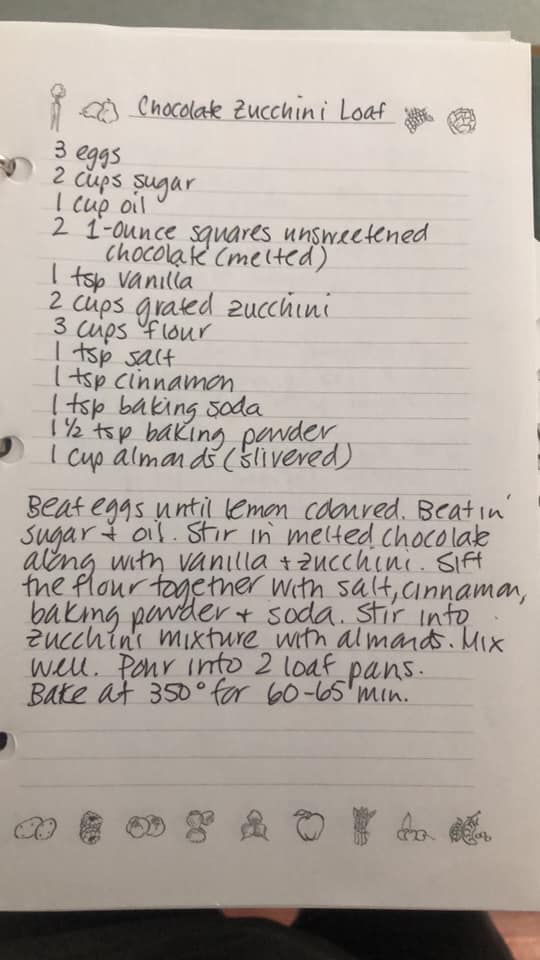 Chocolate Zucchini Loaf
3 eggs
2 cups sugar
1 cup oil
2 1-ounce squares unsweetened
chocolate (melted)
1 tsp vanilla
2 cups grated zucchini
3 cups flour
1 tsp salt
1 tsp cinnamon
1 tsp baking soda
1 1/2 tsp baking powder
1 cup almonds (slivered)
Beat eggs until lemon coloured. Beat in
sugar + oil. Stir in melted chocolate
along with vanilla + zucchini. Sift
the flour together with salt, cinnamon,
baking powder + soda. Stir into
zucchini mixture with almonds. Mix
well. Pour into 2 loaf pans.
Bake at 350° for 60-65 min.